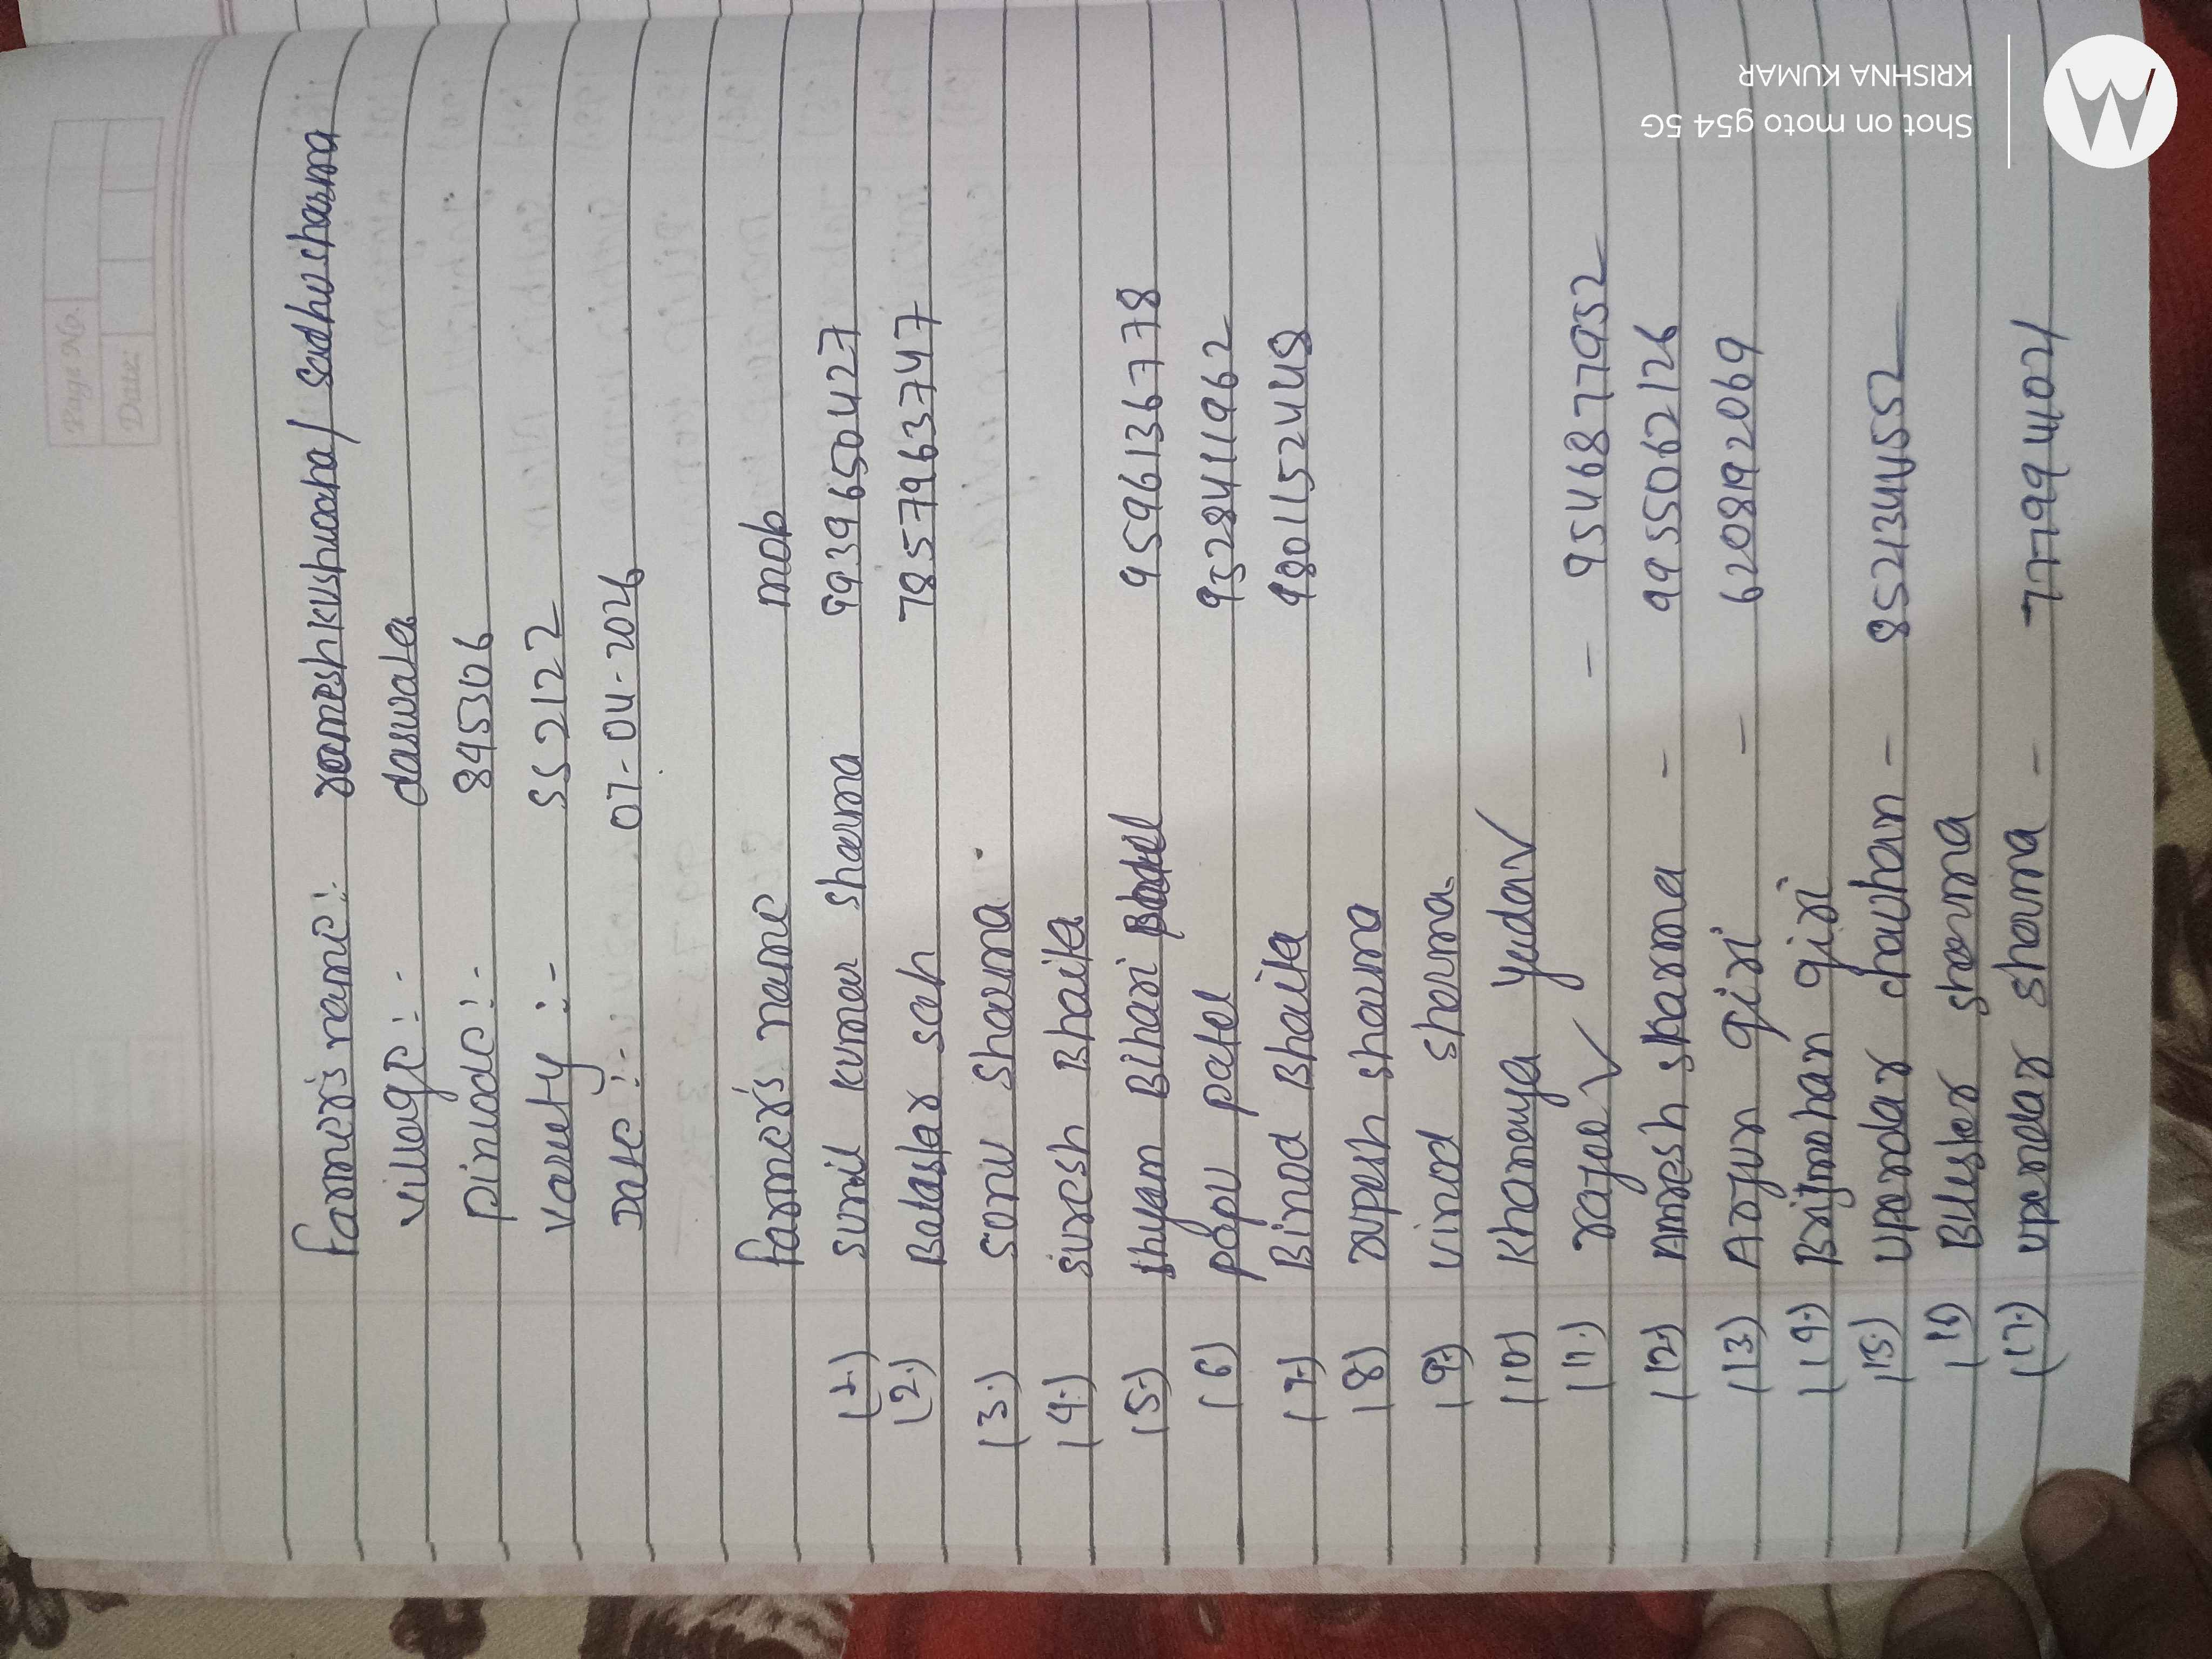 Page No.
Date:
Farmer's name:- rameshkushwaha/ sadhusharma
village:- daswata
pincode:- 845306
Variety:- 552122
Date:- 07-04-2026
farmer's name mob
(1.) sunil kumar sharma 9939650427
(2.) Batastar sah 7857963747
(3.) sonu sharma
(4.) suresh Bhaita
(5.) shyam Bihari patel 9596136778
(6) papu patel 9528411962
(7.) Binod Bhaita 9801152448
(8) rupesh sharma
(9.) vinod sharma
(10) Khanaya yadav ✓
(11.) ✓ - 9546877952
(12.) Amresh sharma - 9955062126
(13.) Arjun giri - 6208192069
(14.) Brijmohan giri
(15.) upendar chauhan - 8521344552
(16) Bulester sharma
(17.) upendar sharma - 7779941021
Shot on moto g54 5G
KRISHNA KUMAR